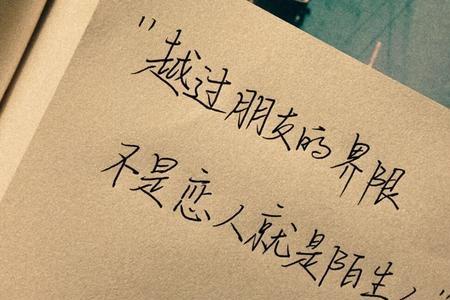 "越过朋友的界限
不是恋人就是陌生人"